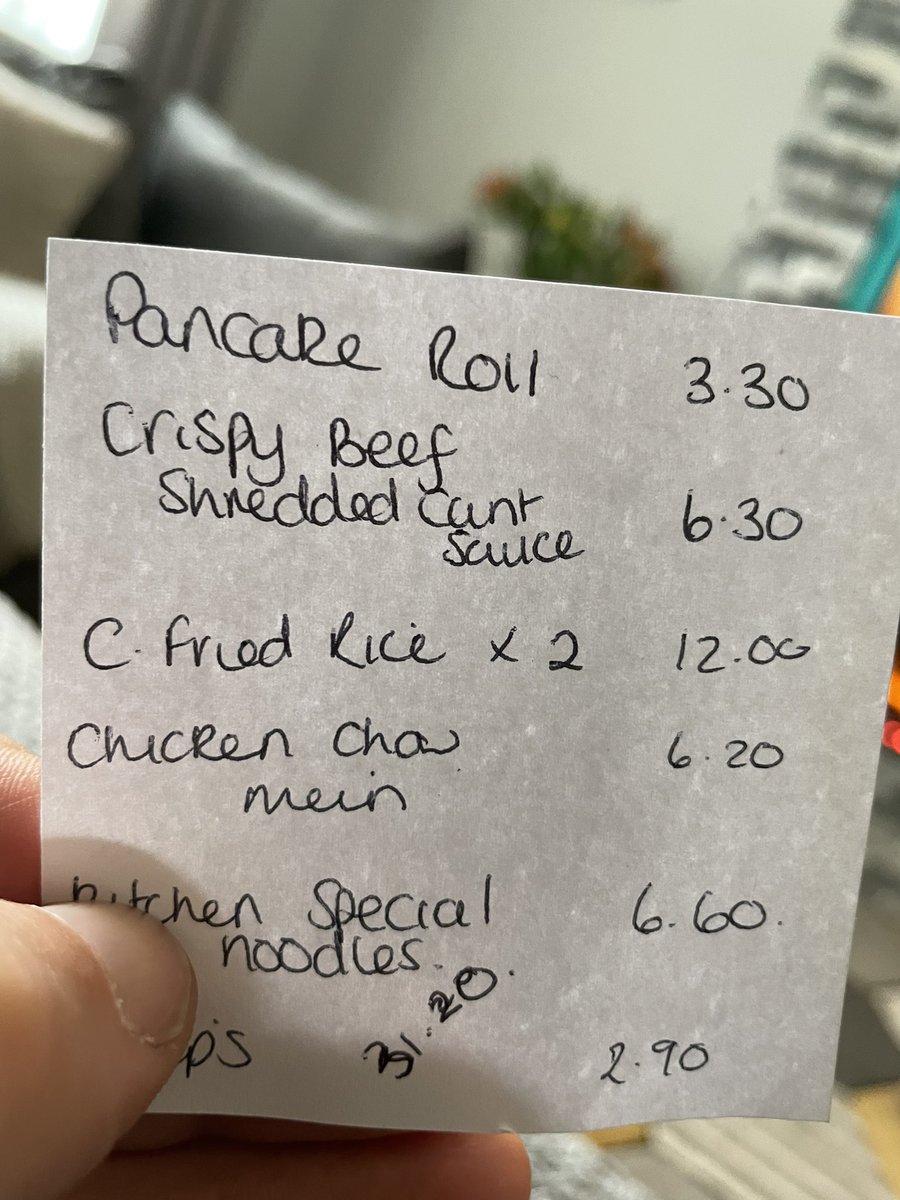 Pancake Roll 3.30
Crispy Beef
Shredded Cant 6.30
Sauce
C. Fried Rice x 2 12.00
Chicken Chow 6.20
mein
Kitchen Special 6.60.
noodles.
20.
ps 2.90